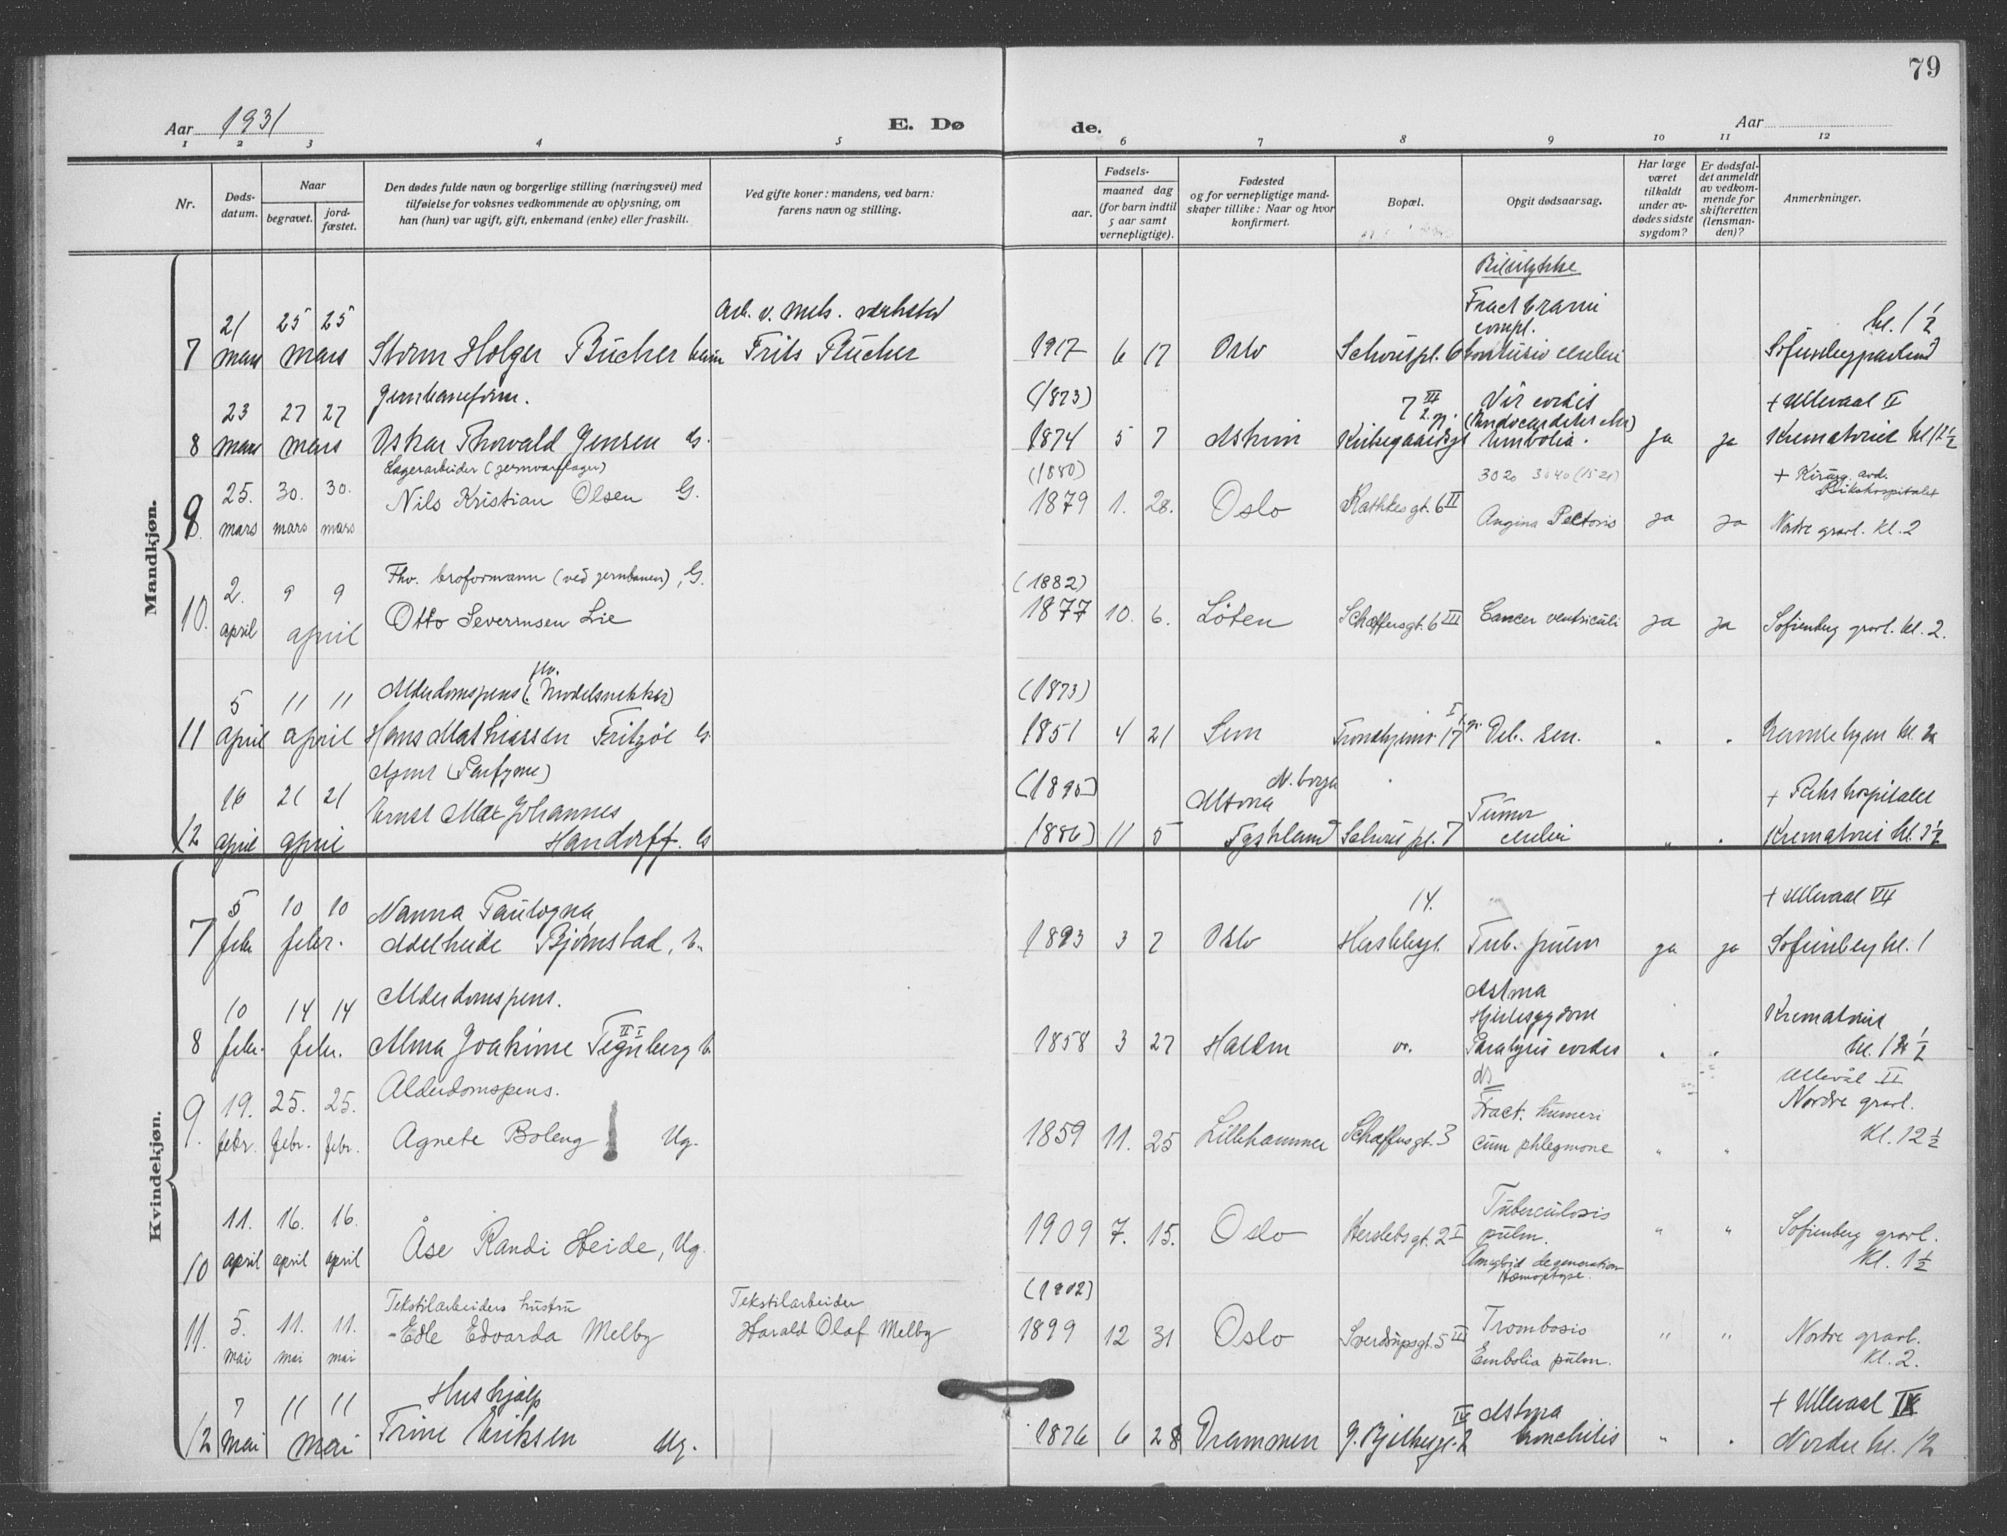 79
Aar 1931
E. Dø
de.
Aar
1 2 3 4 5 6 7 8 9 10 11 12
Nr.
Døds-
datum.
Naar
begravet.
jord-
fæstet.
Den dødes fulde navn og borgerlige stilling (næringsvei) med
tilføielse for voksnes vedkommende av oplysning, om
han (hun) var ugift, gift, enkemand (enke) eller fraskilt.
Ved gifte koner: mandens, ved barn:
farens navn og stilling.
Fødsels-
aar.
maaned dag
(for barn indtil
5 aar samt
vernepligtige).
Fødested
og for vernepligtige mand-
skaper tillike: Naar og hvor
konfirmert.
Bopæl.
Opgit dødsaarsag.
Har læge
været
tilkaldt
under av-
dødes sidste
sygdom?
Er dødsfal-
det anmeldt
av vedkom-
mende for
skifteretten
(lensman-
den)?
Anmerkninger.
Mandkjøn.
Bilulykke
21 25 25 Arb. v. mek. verksted Fract. cranii kl. 1 1/2
compl.
7 mars mars Storm Holger Bücher Frits Bücher 1917 6 17 Oslo Schouspl. 6 contusio cerebri
23 27 27 (1873) 7 III Vit. cordis + Ullevaal II
8 mars mars Oskar Thorvald Jensen G. 1874 5 7 Askim Kirkegaardsgt Embolia. ja ja Krematoriet kl 12 1/2
Lagerarbeider (jernvarelager) (1880) 3020 3040 (1521) + Kirurg. avd.
Rikshospitalet
25. 30. 30. Nils Kristian Olsen G. 1879 1. 28. Oslo Rathkesgt. 6 II
9. mars mars mars Angina Pectoris ja ja Nordre gravl. kl. 2
Fhv. broformann (ved jernbanen), G. (1882)
2. 9 9
10. april april Otto Severinsen Lie 1877 10. 6. Löten Schæffersgt. 6 III Cancer ventriculi ja ja Sofienberg gravl. kl. 2.
fhv.
5 11 11 Alderdomspens. (Modelsnekker) (1873)
11 april april Hans Mathiassen Fritzöe G 1851 4 21 Sem Trondhjemsv. 17 I Deb. sen. " "
Agent (Parfyme)
16 21 21 Ernst Max Johannes (1895) Altona N. borger Tumor + Rikshospitalet
12 april april Handorff. G (1886) 11 5 Tyskland Schous pl. 7 cerebri " " Krematoriet kl. 3 1/2
Kvindekjøn.
5 10 10 Nanna Tautogna 14. + Ullevaal VII
7 febr febr. Adelheide Bjørnstad, E. 1893 3 2 Oslo Herslebsgt. Tub. pulm ja ja Sofienberg kl. 1
Alderdomspens. Astma
10 14 14 Hjertesygdom Krematoriet
8 febr. febr. Alma Joakime Tegnberg 1858 3 27 Halden Paralysis cordis " " kl. 12 1/2
Alderdomspens. Ullevål II
Nordre gravl.
19. 25. 25. Fract. humeri
9. febr. febr. febr. Agnete Boleng Ug. 1859 11. 25 Lillehammer Schæffersgt. 3 cum phlegmone " " kl. 12 1/2
11. 16. 16. Tuberculosis
10 april april april Åse Randi Heide, Ug. 1909 7. 15. Oslo Herslebsgt. 2 I pulm. " " Sofienberg gravl.
Amyloid degeneration kl. 1 1/2
Hæmoptyse.
Tekstilarbeiders hustru Tekstilarbeider (1902)
11. 5. 11. 11. Edle Edvarda Melby Harald Olaf Melby 1899 12 31 Oslo Sverdrupsgt. 5 III Trombosis " " Nordre gravl.
mai mai mai Embolia pulm. kl. 2.
Hushjelp
7 11 11 Astma + Ullevaal IX
12 mai mai Trine Eriksen Ug. 1876 6 28 Drammen G. Bjelkesgt. 2 IV bronchitis " " Nordre kl. 12